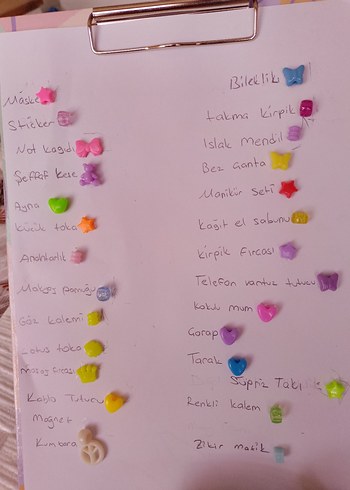 Maske
Sticker
Not kağıdı
Şeffaf kese
Ayna
küçük toka
Anahtarlık
Makyaj pamuğu
Göz kalemi
Lotus toka
masaj fırçası
Kablo Tutucu
Magnet
Kumbara
Bileklik
takma kirpik
Islak Mendil
Bez Çanta
Manikür seti
kağıt el sabunu
kirpik fırçası
Telefon vantuz tutucu
kokulu mum
Çorap
Tarak
Süpriz Takı
Renkli kalem
Zikir matik